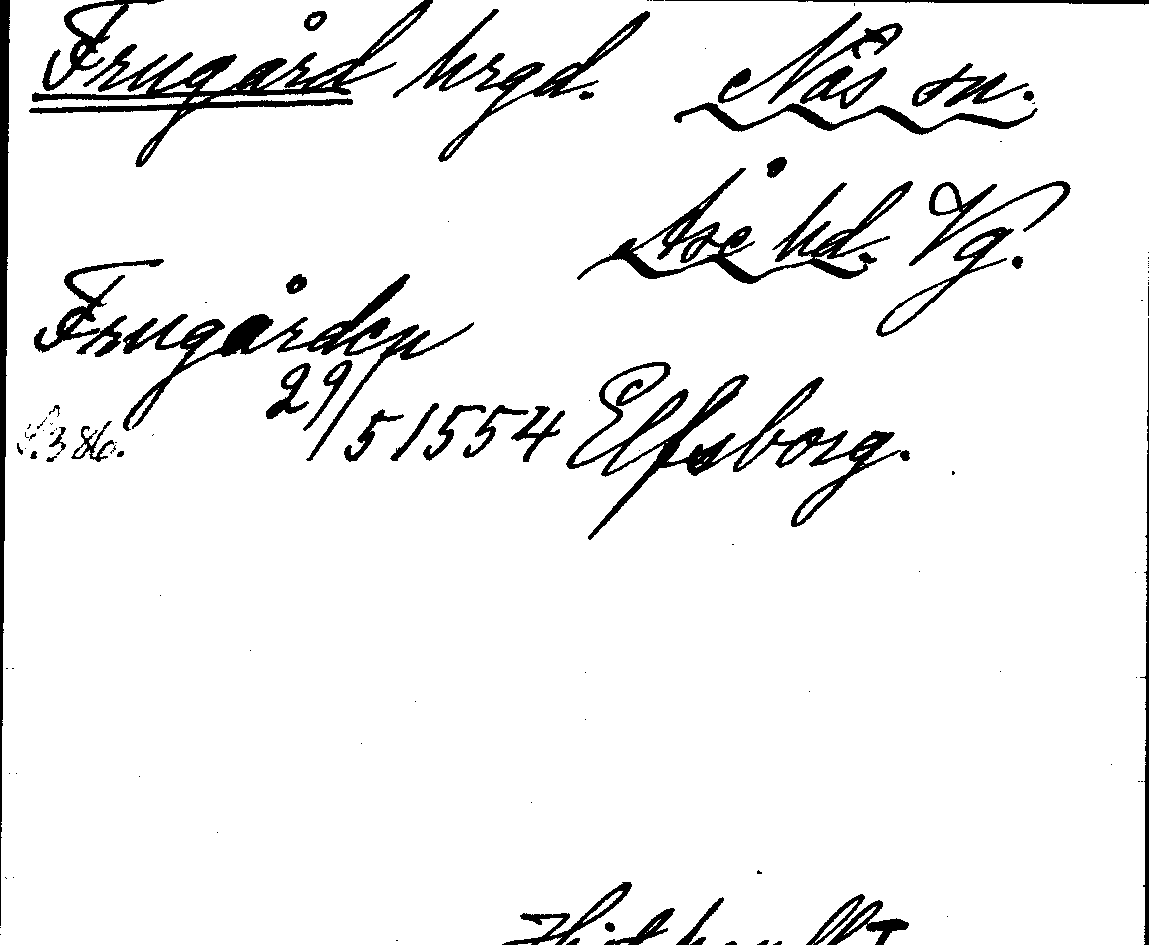 Frugård hrgd. Näs sn.
Åse hd. Vg.
Frugården
29/5 1554 Elfsborg.